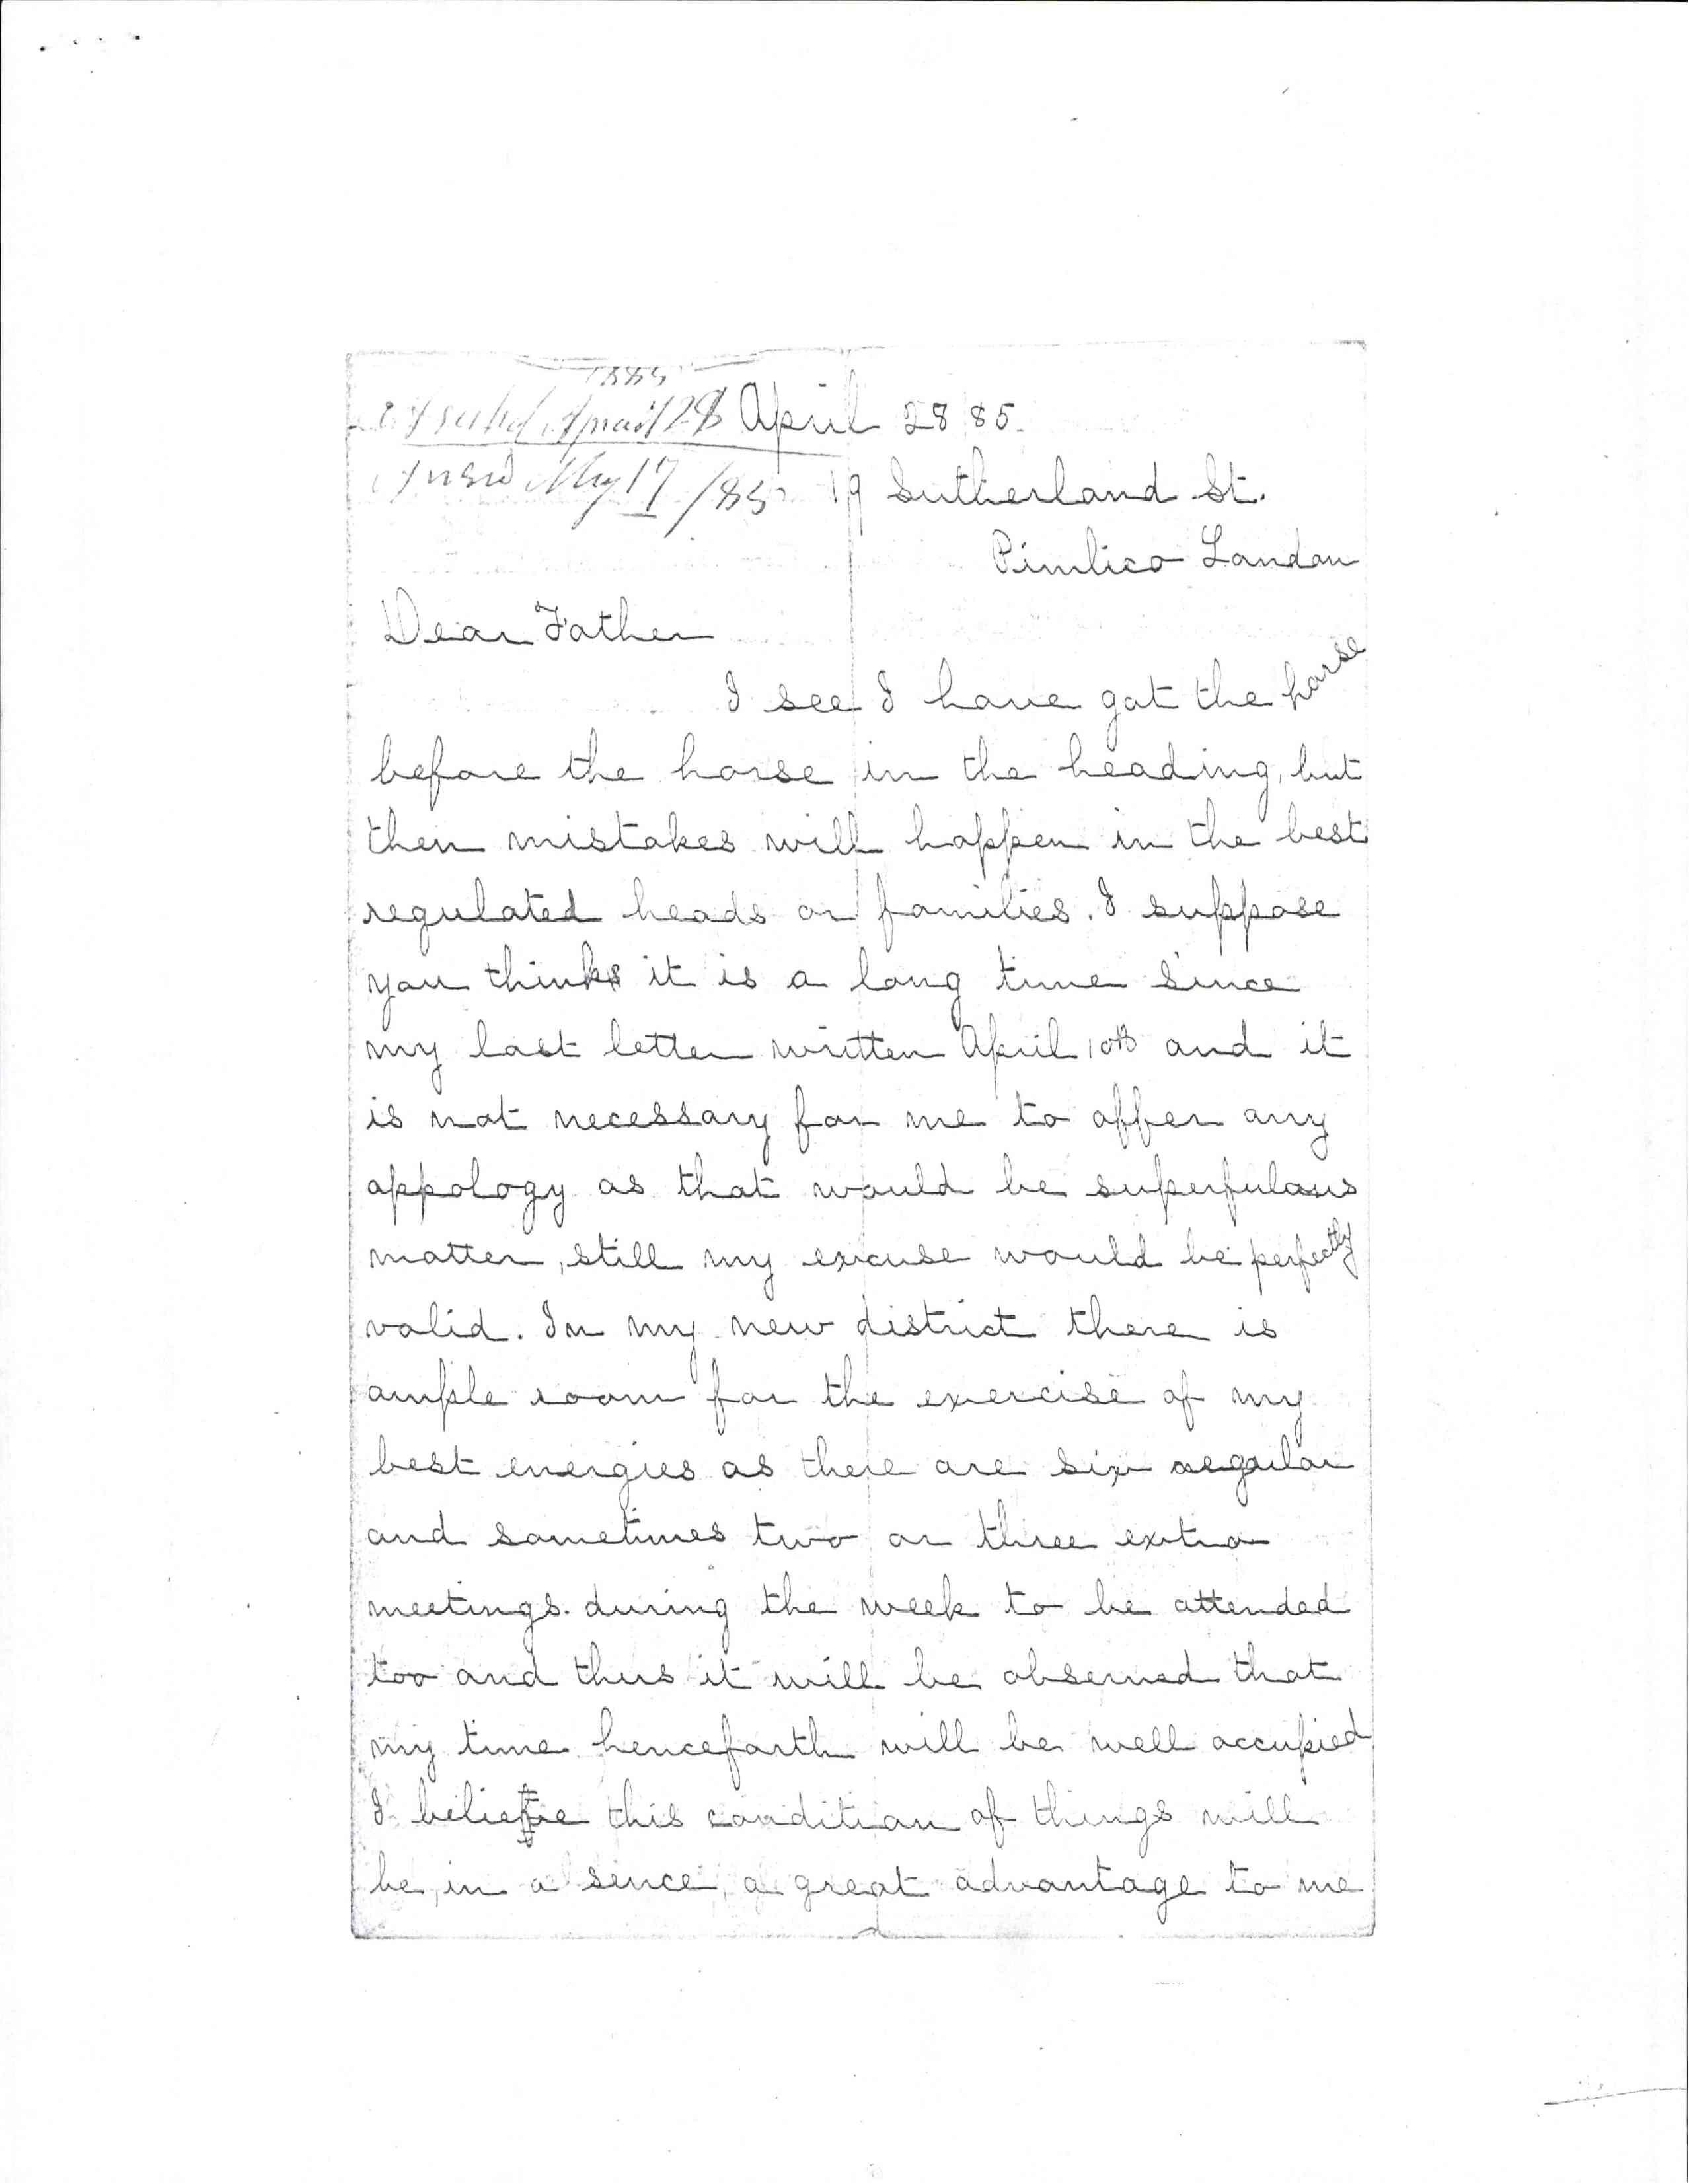 1885
April 28 April 28 85.
May 17/85 19 Sutherland St.
Pimlico London
Dear Father
I see I have got the horse
before the horse in the heading, but
then mistakes will happen in the best
regulated heads or families. I suppose
you think it is a long time since
my last letter written April 10th and it
is not necessary for me to offer any
appology as that would be superfulous
matter, still my excuse would be perfectly
valid. In my new district there is
ample room for the exercise of my
best energies as there are six regular
and sometimes two or three extra
meetings. during the week to be attended
too and thus it will be observed that
my time henceforth will be well occupied
I belieive this condition of things will
be, in a sence, a great advantage to me